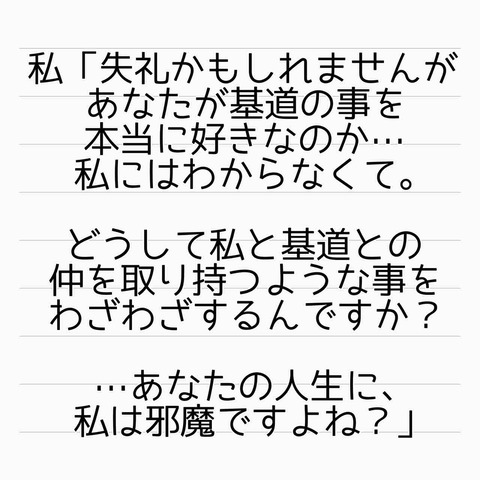 私「失礼かもしれませんが
あなたが基道の事を
本当に好きなのか…
私にはわからなくて。
どうして私と基道との
仲を取り持つような事を
わざわざするんですか？
…あなたの人生に、
私は邪魔ですよね？」